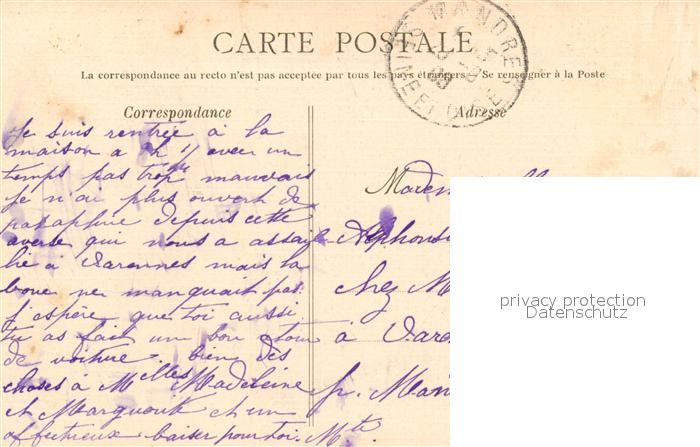 CARTE POSTALE
La correspondance au recto n'est pas acceptée par tous les pays étrangers. Se renseigner à la Poste
Correspondance
Adresse
MANDRES
SEINE ET OISE
Je suis rentrée à la
maison à 7h 1/2 avec un
temps pas trop mauvais
je n'ai plus ouvert de
parapluie depuis cette
averse qui nous a assail
lie à Varennes mais la
boue ne manquait pas.
J'espère que toi aussi
tu as fait un bon tour
de voiture. bien des
choses à Mlles Madeleine
et Marguerite et un
affectueux baiser pour toi. Mte.
Alphons
chez M
à Vare
pr. Man
privacy protection
Datenschutz